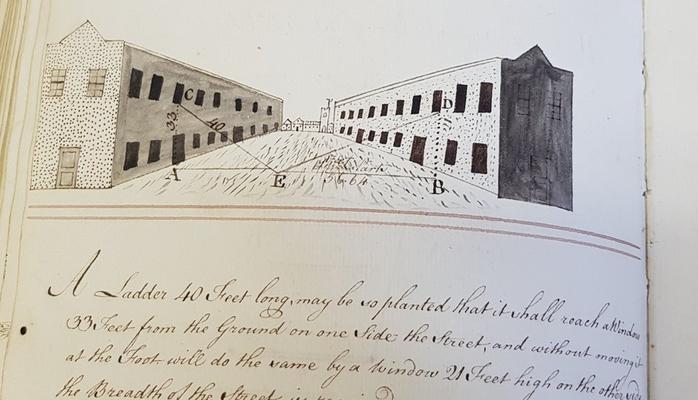 C
D
33
40
A
E
B
56.64
A Ladder 40 Feet long, may be so planted that it shall reach a Window
33 Feet from the Ground on one Side the Street, and without moving it
at the Foot will do the same by a window 21 Feet high on the other side
the Breadth of the Street is